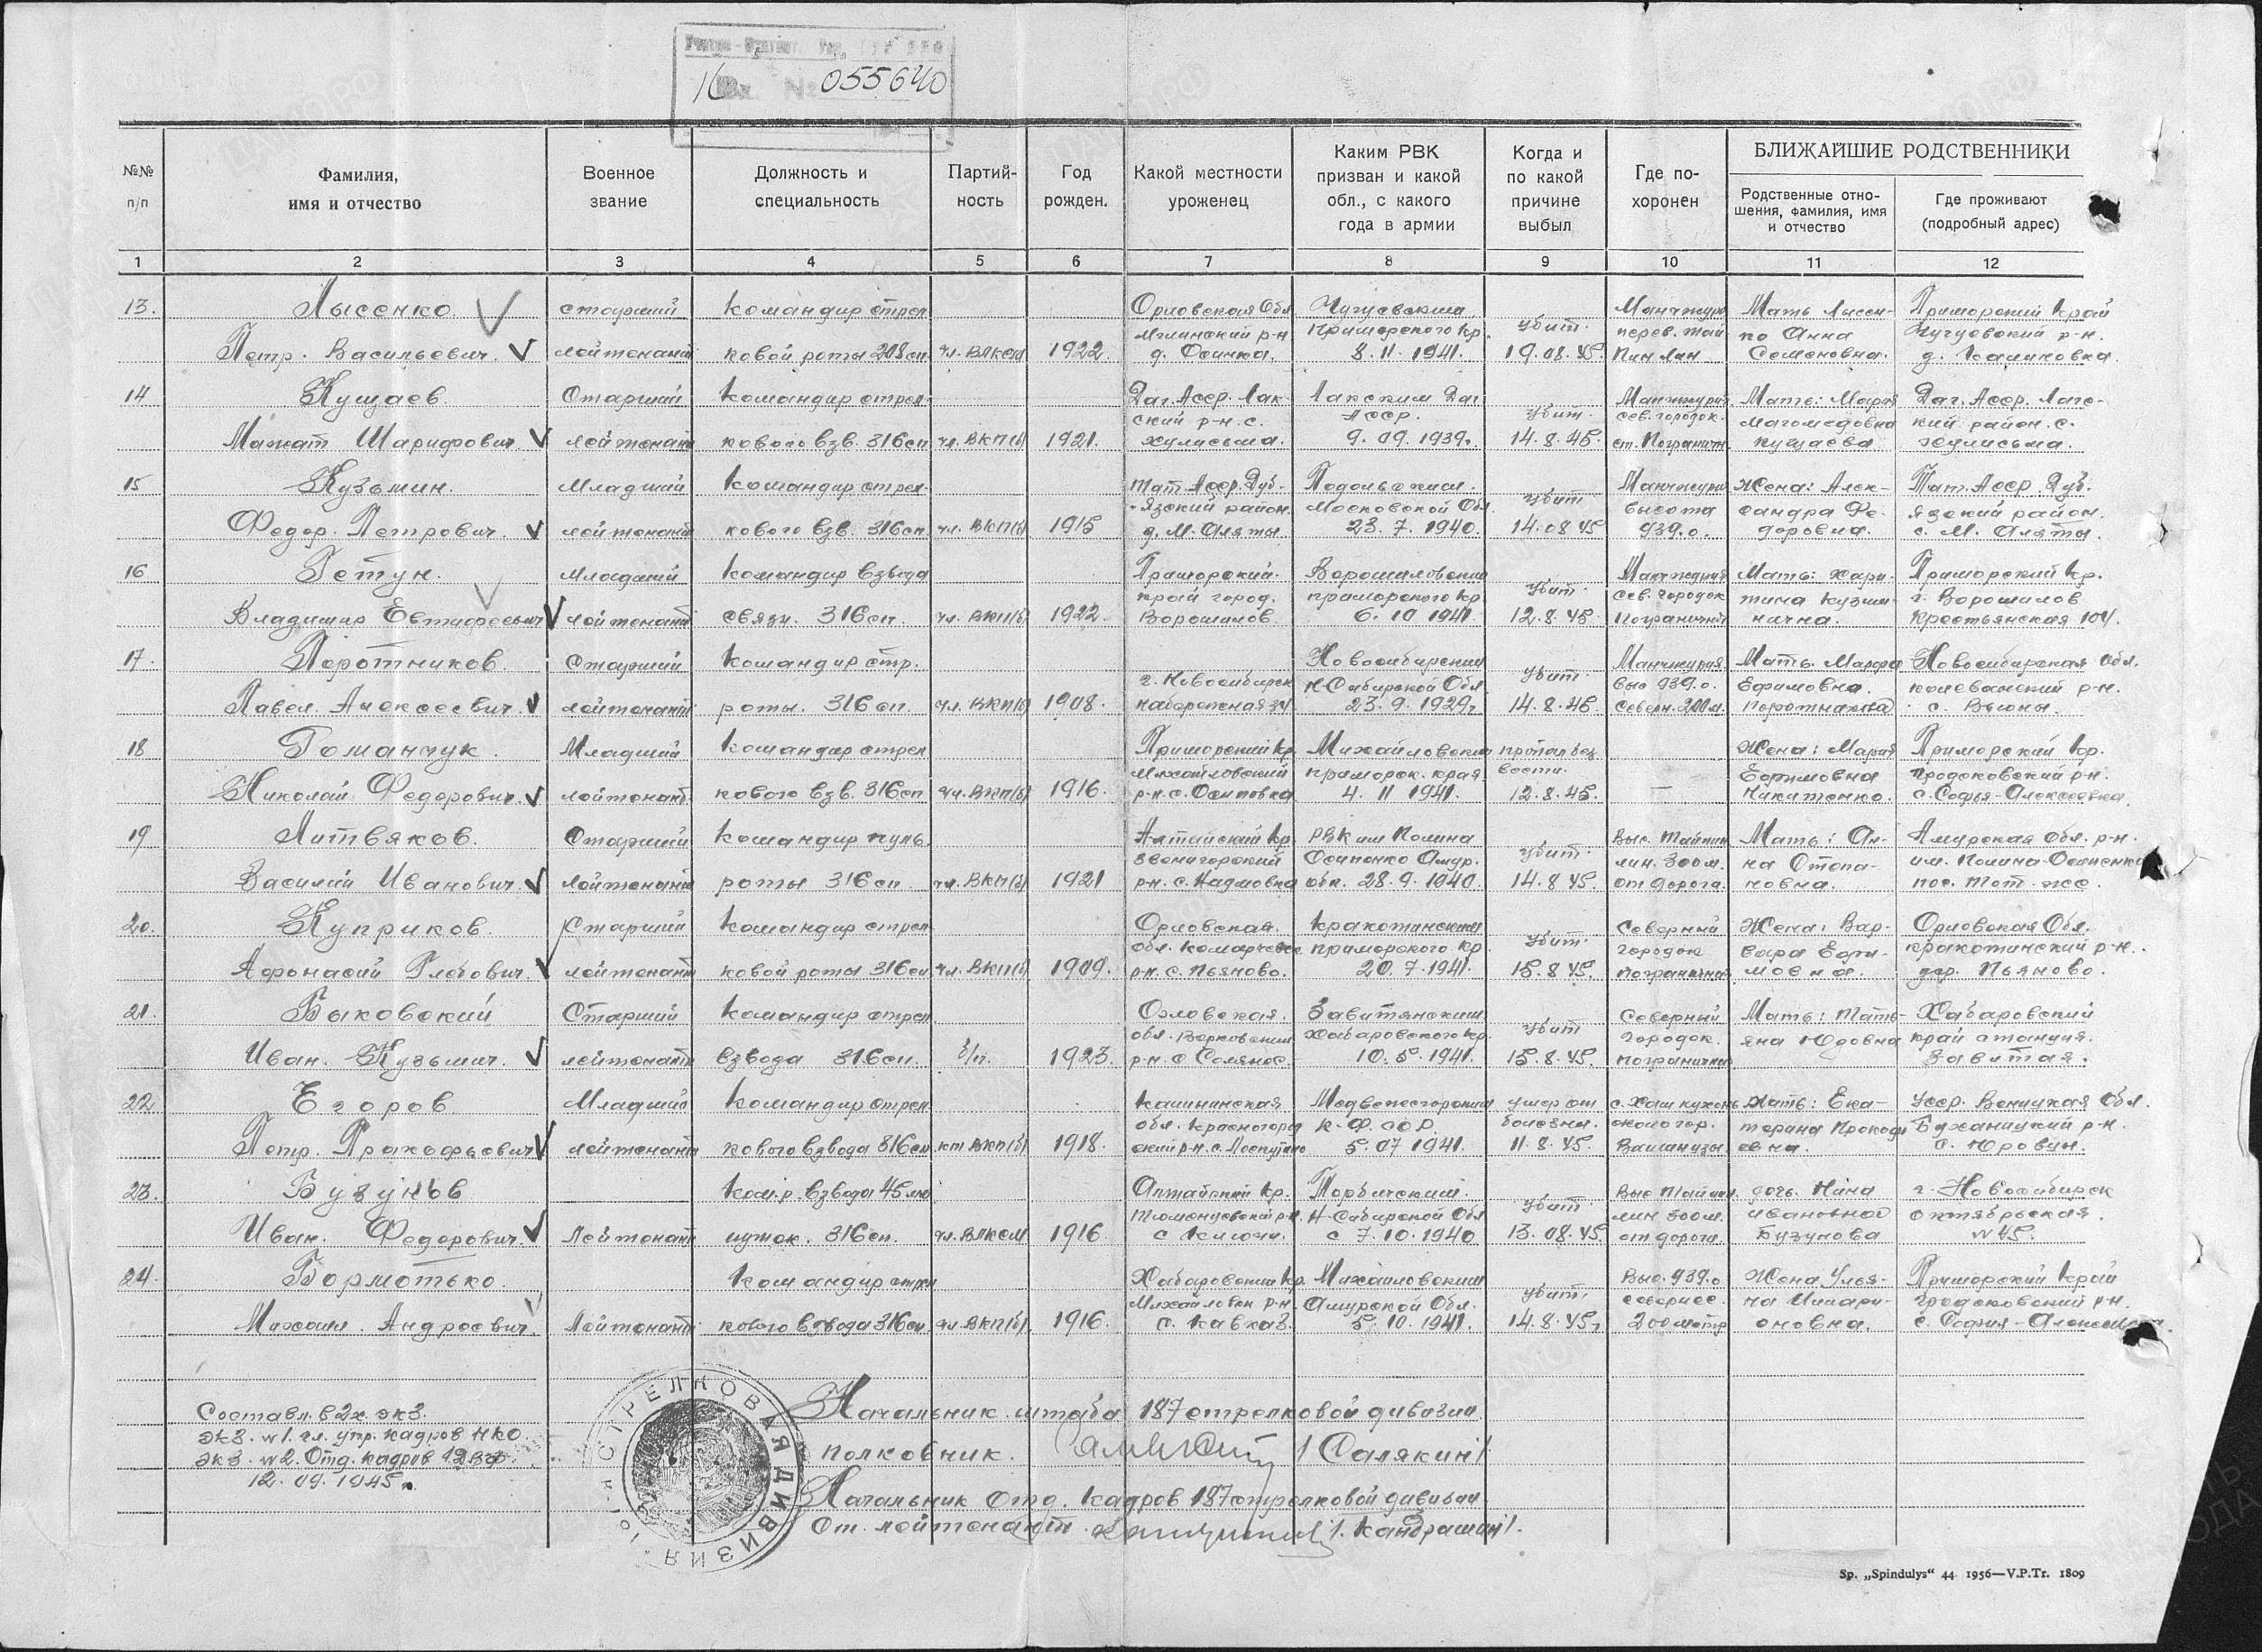 вх. № 055640
№№ п/п
Фамилия, имя и отчество
Военное звание
Должность и специальность
Партий-ность
Год рожден.
Какой местности уроженец
Каким РВК призван и какой обл., с какого года в армии
Когда и по какой причине выбыл
Где по-хоронен
БЛИЖАЙШИЕ РОДСТВЕННИКИ
Родственные отно-шения, фамилия, имя и отчество
Где проживают (подробный адрес)
1 2 3 4 5 6 7 8 9 10 11 12
13. Лысенко старший командир стрел Орловская Обл Чугуевским Манчжурия Мать Лысен- Приморский край
Мглинский р-н Приморского кр. убит. перев. Тай ко Анна Чугуевский р-н.
Петр. Васильевич. лейтенант ковой роты 208 сп чл. ВЛКСМ 1922. д. Осинка. 8. 11. 1941. 19.08.45. Пин Лин Семеновна. д. Калиновка.
14 Кущаев Старший Командир стрел- Даг. Асср. Лак- Лакским Даг Манчжурия Мать: Мария Даг. Асср. Лакс-
ский р-н. с. Асср. убит. сев. городок. Магомедовна кий район. с.
Мажат Шарифович лейтенант кового взв. 316 сп чл. ВКП(б) 1921. Хулисьма. 9.09.1939г. 14.8.45. ст. Погранич. Кущаева Хулисьма.
15 Кузьмин. Младший Командир стрел- Тат. Асср. Дуб- Подольским. Манчжурия Жена: Алек- Тат. Асср. Дуб.
Язский район. Московской Обл. убит высота сандра Фе- язский район.
Федор. Петрович. лейтенант кового взв. 316 сп. чл. ВКП(б) 1915 д. М. Аляты 23. 7. 1940. 14.08.45 939.0. доровна. с. М. Аляты.
16 Гетун. Младший Командир взвода Приморский Ворошиловским Манчжурия Мать: Хари- Приморский кр.
край город. приморского кр убит. сев. городок тина Кузми- г. Ворошилов
Владимир Евтифеевич лейтенант связи. 316 сп. чл. ВКП(б) 1922 Ворошилов. 6. 10 1941 12.8.45. Пограничный нична. Крестьянская 104.
17. Поротников. Старший Командир стр. Новосибирским Манчжурия Мать. Марфа Новосибирская обл.
г. Новосибирск Н-Сибирской Обл. убит. выс 939.0. Ефимовна. колеванский р-н.
Павел. Алексеевич. лейтенант роты. 316 сп. чл. ВКП(б) 1908. набережная 34 23. 9. 1929г. 14.8.45. Северн. 200м. Поротникова с. Вьюны.
18 Гоманчук. Младший Командир стрел Приморский кр. Михайловским пропал без Жена: Мария Приморский кр.
Михайловский приморск. края вести. Ефимовна Гродековский р-н.
Николай Федорович. лейтенант. кового взв. 316 сп чл. ВКП(б) 1916. р-н. с. Осиповка 4. 11 1941. 12.8.45. — Никитенко. с. Софья-Алексеевка.
19 Литвяков. Старший Командир пуль. Алтайский кр. РВК им Полина Выс. Тайпин Мать: Ан- Амурская обл. р-н.
Змеиногорский Осипенко Амур. убит. лин. 300м. на Степа- им. Полина-Осипенко
Василий Иванович. лейтенант роты 316 сп чл. ВКП(б) 1921 обл. 28.9.1940. 14.8.45. от дороги. новна.
20. Куприков. Старший Командир стрел Орловская. приморского кр убит. Северный Жена: Вар- Орловская Обл.
городок вара Ефи-
Афонасий Глебович. лейтенант ковой роты 316 сп чл. ВКП(б) 1909. р-н. с. Пьяново. 20. 7. 1941. 15.8.45. пограничная мовна. дер. Пьяново.
21. Быковский Старший Командир стрел Орловская. Завитянским Северный Мать: Тать- Хабаровский
обл. Хабаровского кр. убит городок. яна Юдовна край станция.
Иван. Кузьмич. лейтенант взвода 316 сп. б/п. 1923. р-н. 10. 5. 1941. 15.8.45. погранична Завитая.
22 Егоров Младший Командир стрел Калининская Медвежегорским умер от Мать: Ека-
обл. Красногород К-Ф. ССР. болезни. терина Прокофь р-н.
Петр. Прокофьевич лейтенант кового взвода 316 сп кт. ВКП(б) 1918. ский р-н. с. 5. 07 1941. 11.8.45. евна.
23. Бузунов Ком.р. взвода 45 мм Алтайский кр. Выс Тайпин. дочь. Нина г. Новосибирск
Тюменцевский р-н Н-Сибирской Обл убит. лин 300м. Ивановна Октябрьская.
Иван. Федорович. Лейтенант пушек. 316 сп. чл. ВЛКСМ 1916. с Ключи. с 7. 10. 1940 13.08.45. от дороги. Бузунова №45.
24. Бормотько. Командир стрел Хабаровский кр. Михайловским Выс. 939.0 Жена Улья- Приморский край
Михайловск р-н. Амурской Обл. убит. севернее. на Илари- Гродековский р-н.
Михаил. Андреевич. Лейтенант кового взвода 316 сп. чл. ВКП(б). 1916. с. Кавказ. 5. 10. 1941. 14.8.45г. 200 метр оновна. с. София-Алексеевка.
Составл. в 2х. экз.
экз. №1. гл. упр. кадров НКО.
экз. №2. Отд. кадров
12. 09. 1945г.
СТРЕЛКОВАЯ ДИВИЗИЯ
Начальник штаба 187 стрелковой дивизии
полковник. /Салякин/
Начальник Отд. Кадров 187 стрелковой дивизии
Ст. лейтенант. /. Кандрашин/.
Sp. „Spindulys“ 44 1956—V.P.Tr. 1809